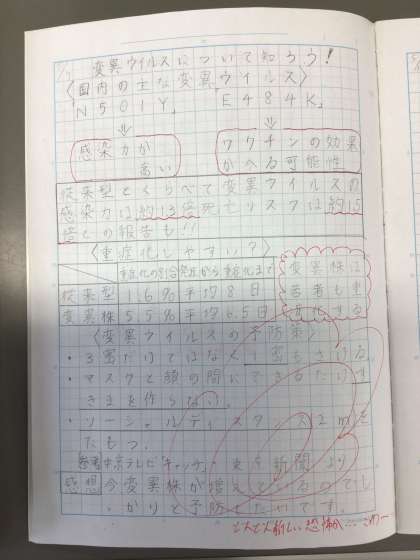 変異ウイルスについて知ろう!
〈国内の主な変異ウイルス〉
「N501Y」 「E484K」
⇓ ⇓
感染力が高い
ワクチンの効果がへる可能性
従来型とくらべて変異ウイルスの
感染力は約1.3倍死亡リスクは約1.5
倍との報告も!!!
〈重症化しやすい?〉
重症化の割合 発症から重症化まで
従来型 1.6% 平均8日
変異株 5.5% 平均6.5日
変異株は
若者も重
症化する
〈変異ウイルスの予防策〉
・3密だけではなく1密もさける。
・マスクと顔の間にできるだけす
きまを作らない。
・ソーシャルディスタンス2mを
たもつ。
参考中京テレビ「キャッチ」・東京新聞より
感想 今変異株が増えているのでし
っかりと予防したいです。
どんどん新しい恐怖が…こわー